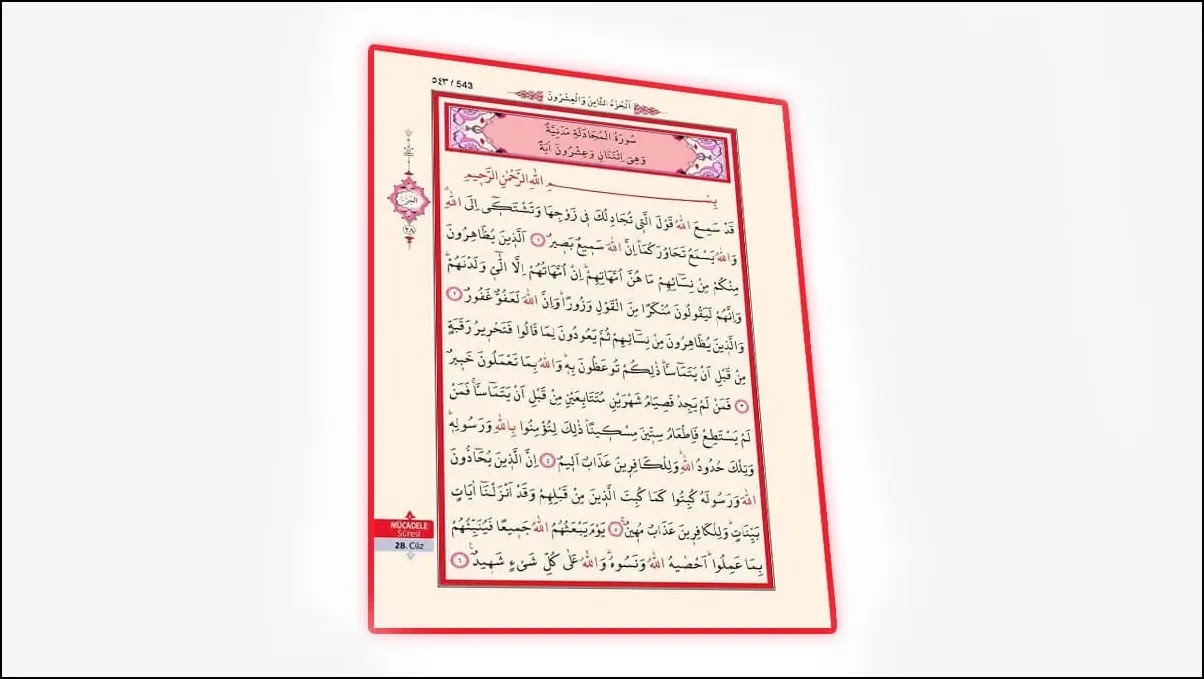 ٥٤٣ / 543
اَلْجُزْءُ الثَّامِنُ وَالْعِشْرُونَ
سُورَةُ الْمُجَادَلَةِ مَدَنِيَّةٌ
وَهِىَ اِثْنَتَانِ وَعِشْرُونَ اٰيَةً
بِسْــــــــــــمِ اللّٰهِ الرَّحْمٰنِ الرَّح۪يمِ
قَدْ سَمِعَ اللّٰهُ قَوْلَ الَّت۪ي تُجَادِلُكَ ف۪ي زَوْجِهَا وَتَشْتَك۪ٓي اِلَى اللّٰهِۗ
وَاللّٰهُ يَسْمَعُ تَحَاوُرَكُمَاۜ اِنَّ اللّٰهَ سَم۪يعٌ بَص۪يرٌ ﴿١﴾ اَلَّذ۪ينَ يُظَاهِرُونَ
مِنْكُمْ مِنْ نِسَٓائِهِمْ مَا هُنَّ اُمَّهَاتِهِمْۜ اِنْ اُمَّهَاتُهُمْ اِلَّا الّٰٓئ۪ وَلَدْنَهُمْۜ
وَاِنَّهُمْ لَيَقُولُونَ مُنْكَرًا مِنَ الْقَوْلِ وَزُورًاۜ وَاِنَّ اللّٰهَ لَعَفُوٌّ غَفُورٌ ﴿٢﴾
وَالَّذ۪ينَ يُظَاهِرُونَ مِنْ نِسَٓائِهِمْ ثُمَّ يَعُودُونَ لِمَا قَالُوا فَتَحْر۪يرُ رَقَبَةٍ
مِنْ قَبْلِ اَنْ يَتَمَٓاسَّاۜ ذٰلِكُمْ تُوعَظُونَ بِه۪ۜ وَاللّٰهُ بِمَا تَعْمَلُونَ خَب۪يرٌ
﴿٣﴾ فَمَنْ لَمْ يَجِدْ فَصِيَامُ شَهْرَيْنِ مُتَتَابِعَيْنِ مِنْ قَبْلِ اَنْ يَتَمَٓاسَّاۚ فَمَنْ
لَمْ يَسْتَطِعْ فَاِطْعَامُ سِتّ۪ينَ مِسْك۪ينًاۜ ذٰلِكَ لِتُؤْمِنُوا بِاللّٰهِ وَرَسُولِه۪ۜ
وَتِلْكَ حُدُودُ اللّٰهِۜ وَلِلْكَافِر۪ينَ عَذَابٌ اَل۪يمٌ ﴿٤﴾ اِنَّ الَّذ۪ينَ يُحَٓادُّونَ
اللّٰهَ وَرَسُولَهُ كُبِتُوا كَمَا كُبِتَ الَّذ۪ينَ مِنْ قَبْلِهِمْ وَقَدْ اَنْزَلْنَٓا اٰيَاتٍ
بَيِّنَاتٍۜ وَلِلْكَافِر۪ينَ عَذَابٌ مُه۪ينٌۚ ﴿٥﴾ يَوْمَ يَبْعَثُهُمُ اللّٰهُ جَم۪يعًا فَيُنَبِّئُهُمْ
بِمَا عَمِلُواۜ اَحْصٰيهُ اللّٰهُ وَنَسُوهُۜ وَاللّٰهُ عَلٰى كُلِّ شَيْءٍ شَه۪يدٌ۟ ﴿٦﴾
الجزء
٢٨
MÜCADELE
Sûresi
28. Cüz